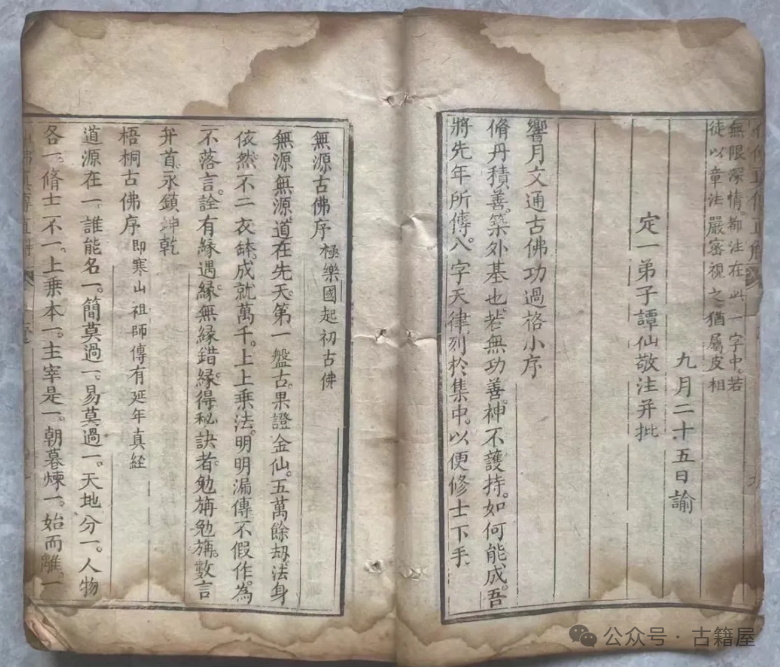 無限深情抑注在此一字中若
徒以章法嚴密視之猶屬皮相
九月二十五日諭
定一弟子譚仙敬注并批
響月文通古佛功過格小序
脩丹積善築外基也若無功善神不護持如何能成吾
將先年所傳八字天律列於集中以便修士下手
無源古佛序 極樂國起初古佛
無源無源道在先天第一盤古果證金仙五萬餘劫法身
依然不二衣缽成就萬千上上乘法明明漏傳不假作為
不落言詮有緣遇緣無緣錯緣得秘訣者勉旃勉旃數言
弁首永鎮坤乾
梧桐古佛序 即寒山祖師傳有延年真経
道源在一誰能名一簡莫過一易莫過一天地分一人物
各一脩士不一上乘本一主宰是一朝暮煉一始而離一
公众号·古籍屋